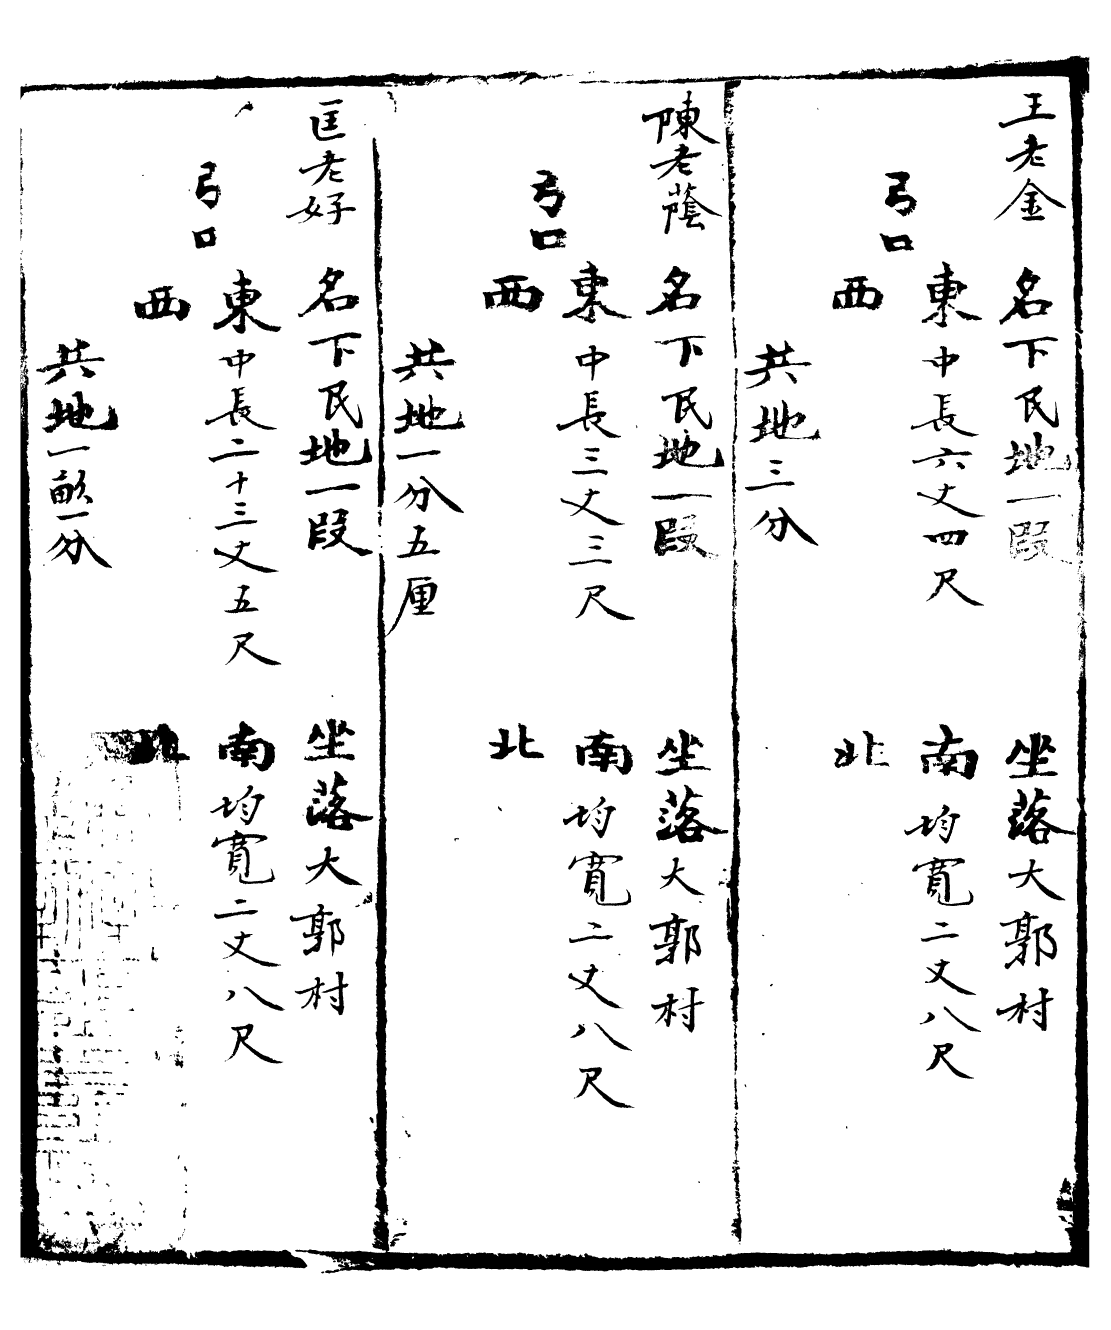 王老金名下民地一段 坐落大郭村
弓口 東中長六丈四尺 南均寬二丈八尺
西 北
共地三分
陳老蔭名下民地一段 坐落大郭村
弓口 東中長三丈三尺 南均寬二丈八尺
西 北
共地一分五厘
匡老好名下民地一段 坐落大郭村
弓口 東中長二十三丈五尺 南均寬二丈八尺
西 北
共地一畝一分